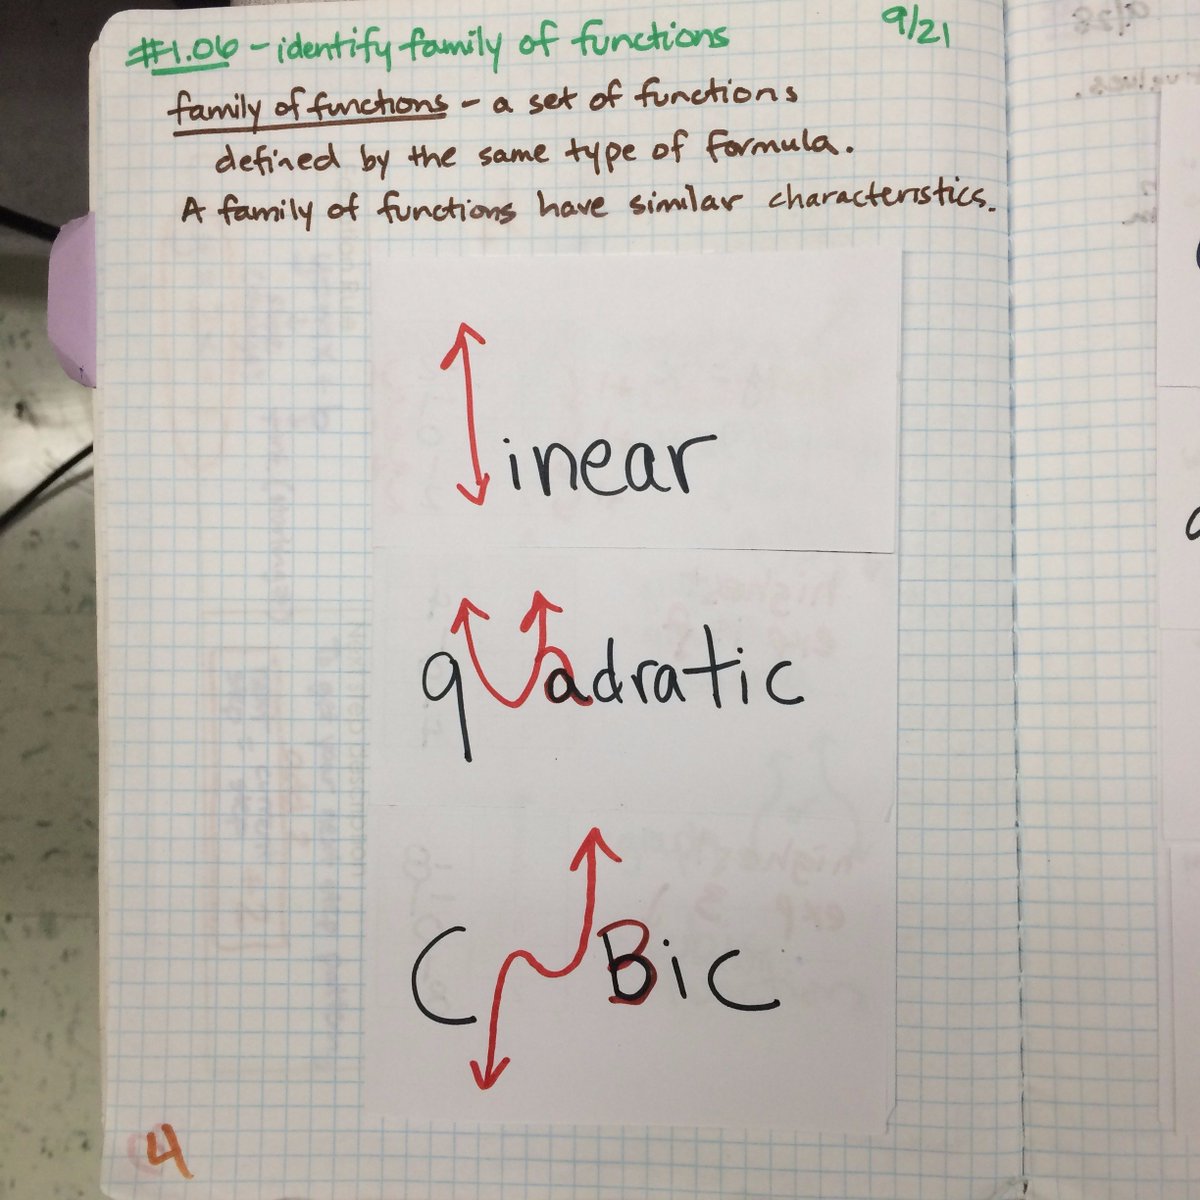 #1.06 - identify family of functions 9/21
family of functions - a set of functions
defined by the same type of formula.
A family of functions have similar characteristics.
linear
quadratic
CuBic
4